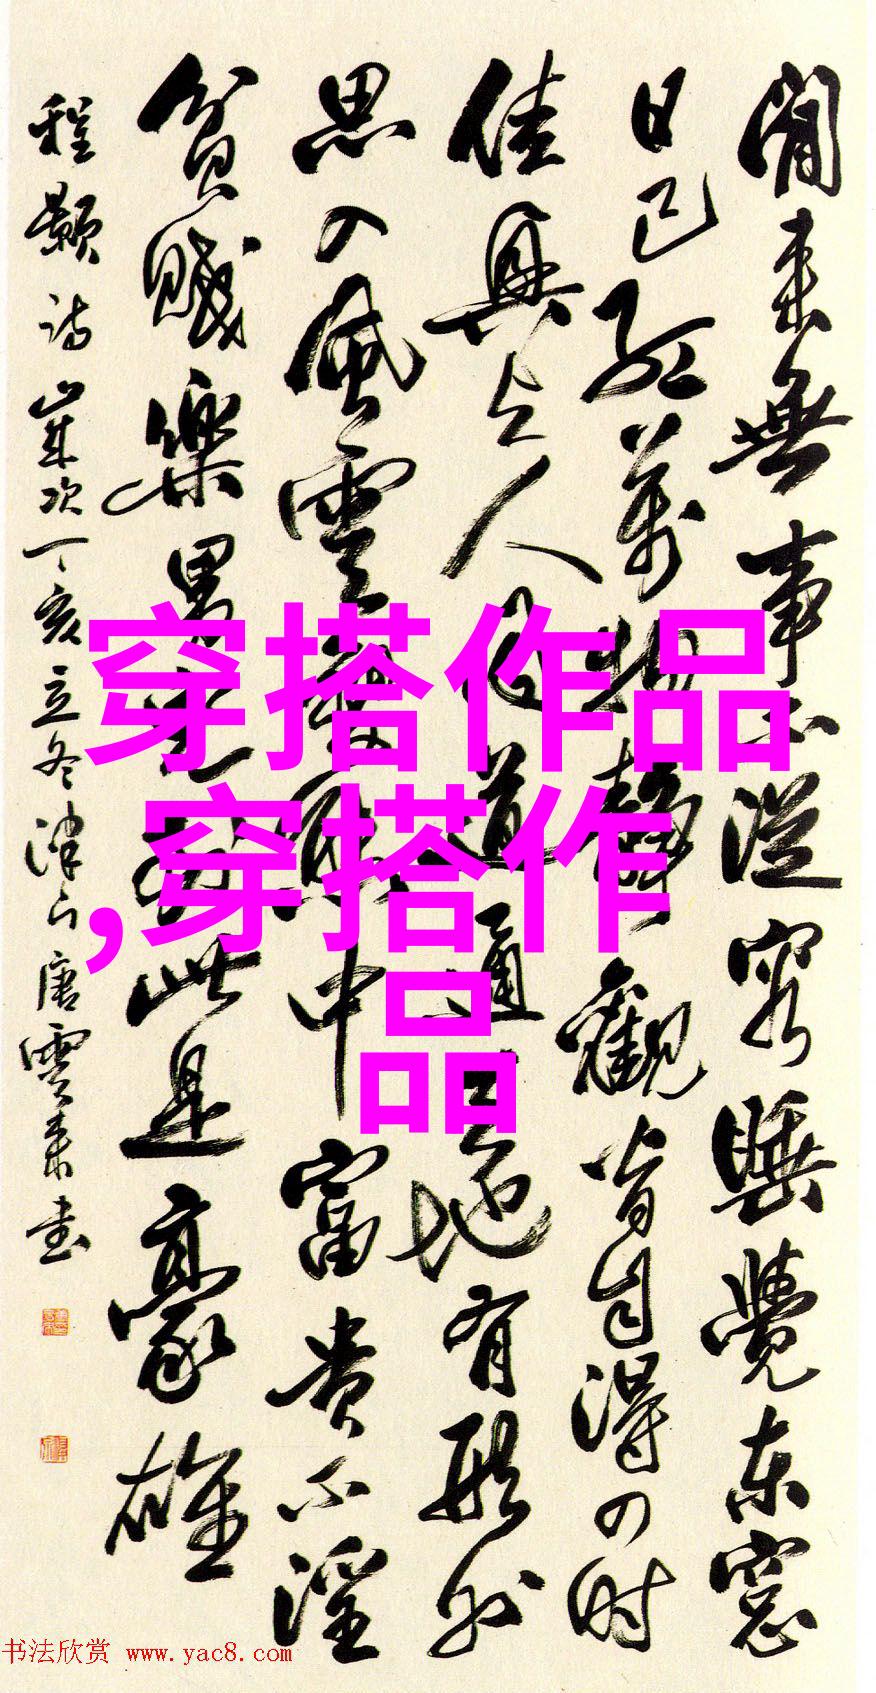 閒来無事不從容睡覺东窓
日已红萬物静觀皆自得四时
佳興与人同道通天地有形外
思入風雲變態中富贵不淫
贫賤樂男兒到此是豪雄
程颢诗歲次丁亥立冬津门唐雲来书
穿搭作品
,穿搭作
品
书法欣赏 www.yac8.com